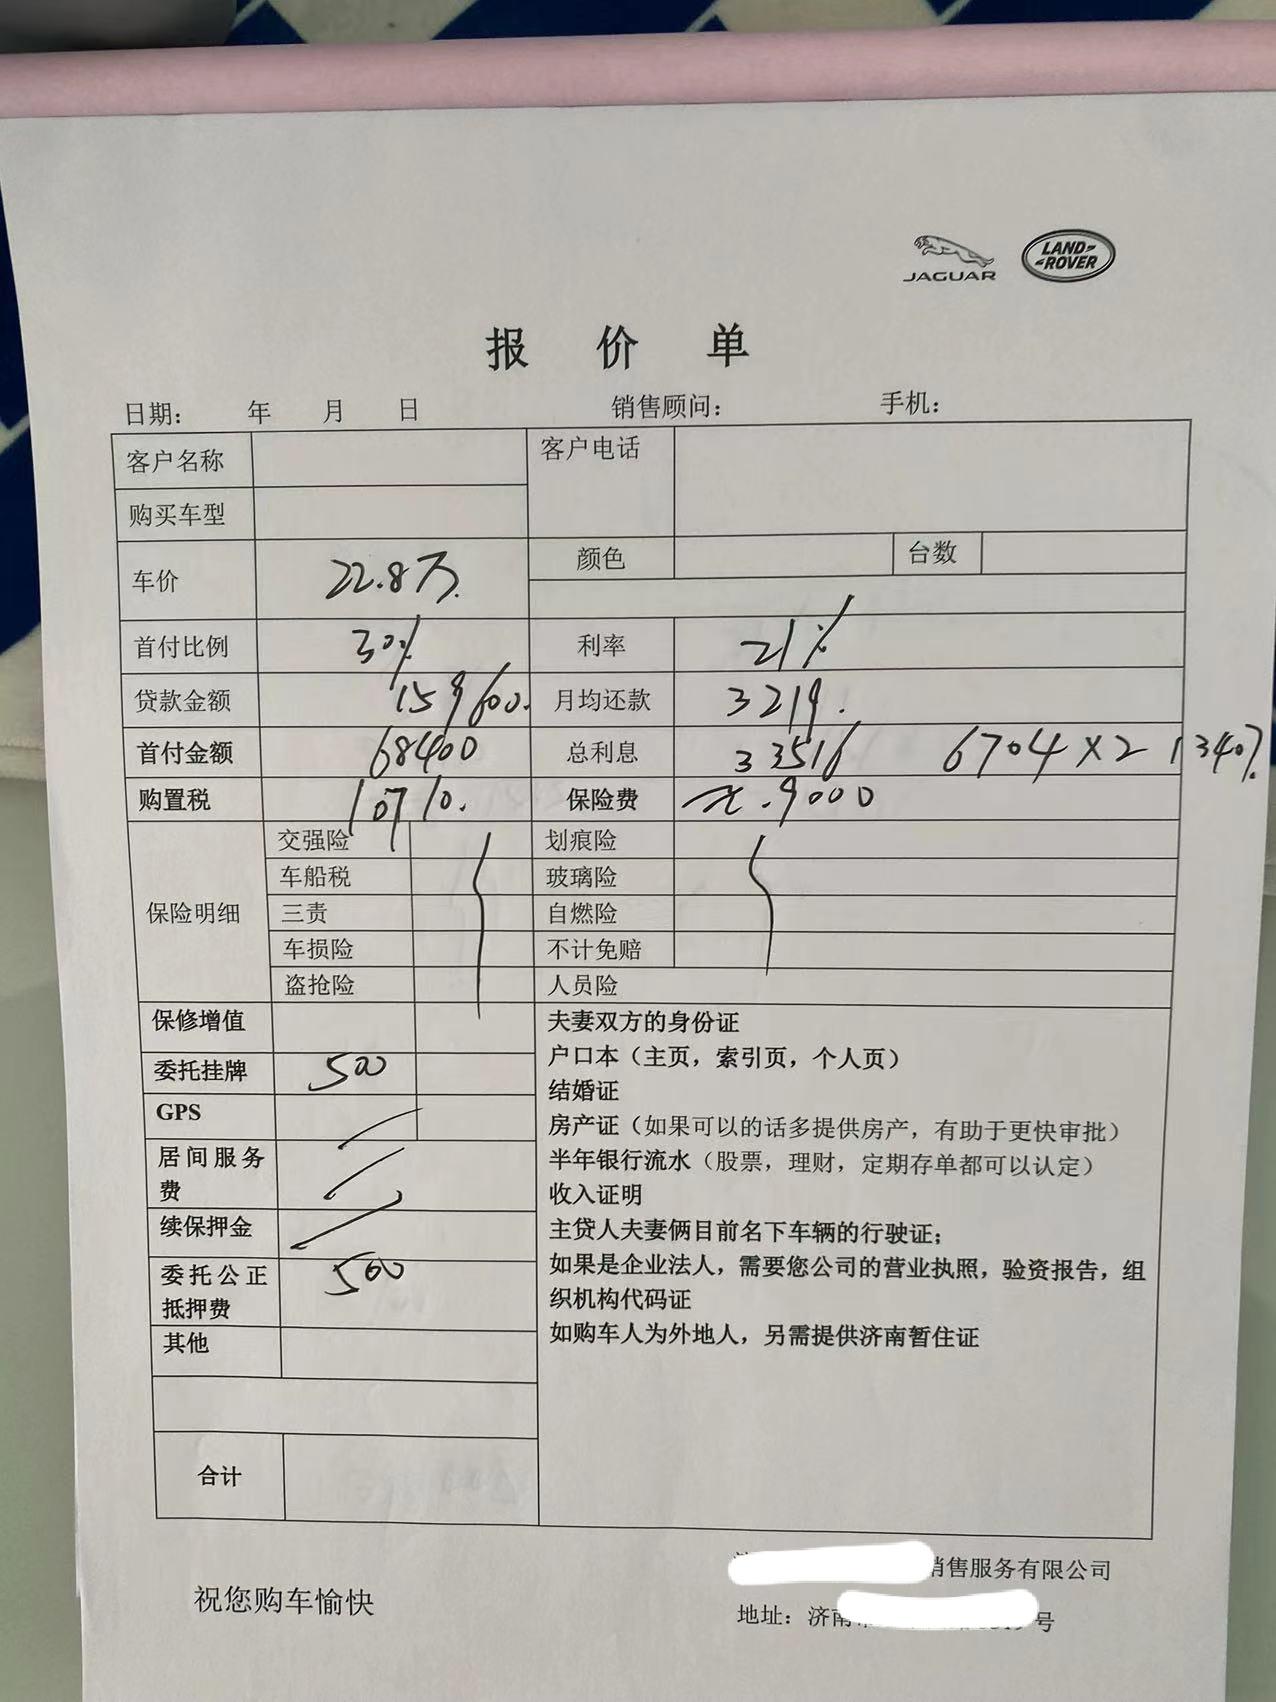 JAGUAR
LAND-
-ROVER
报 价 单
日期： 年 月 日 销售顾问： 手机：
客户名称 客户电话
购买车型
车价 22.8万 颜色 台数
首付比例 30% 利率 21%
贷款金额 159600. 月均还款 3219.
首付金额 68400 总利息 33516 6704×2 1340%
购置税 10710. 保险费 9000
保险明细 交强险 划痕险
车船税 玻璃险
三责 自燃险
车损险 不计免赔
盗抢险 人员险
保修增值 夫妻双方的身份证
户口本（主页，索引页，个人页）
委托挂牌 500 结婚证
GPS 房产证（如果可以的话多提供房产，有助于更快审批）
居间服务 半年银行流水（股票，理财，定期存单都可以认定）
费 收入证明
续保押金 主贷人夫妻俩目前名下车辆的行驶证；
委托公正 500 如果是企业法人，需要您公司的营业执照，验资报告，组
抵押费 织机构代码证
其他 如购车人为外地人，另需提供济南暂住证
合计
销售服务有限公司
祝您购车愉快
地址：济南 号